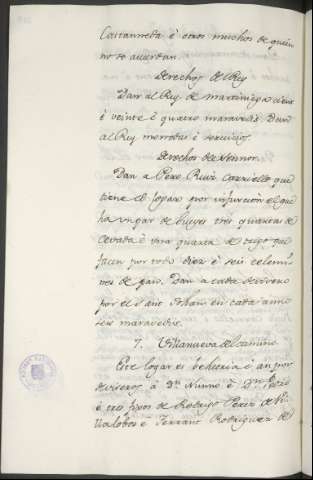 Castanneda è otros muchos de quien
no se acuerdan.
Derechos del Rey
Dan al Rey de martiniega cient
è veinte è quatro maravedis. Dan
al Rey monedas è servicios
Derechos del Sennor.
Dan a Pero Ruiz Carriello que
tiene el logar por infurcion el que
ha un par de bueyes tres quartas de
cevada è una quarta de trigo que
facen por todo diez è seis celemi-
nes de pan. Dan a cada devisero
por el Sant Johan en cada anno
seis maravedis.
7. Villanueva del camino
Este logar es behetria è an por
deviseros à Dn. Nunno è Dn. Pero
è tres fijos de Rodrigo Perez de Vi-
llalobos è Ferrant Rodriguez de